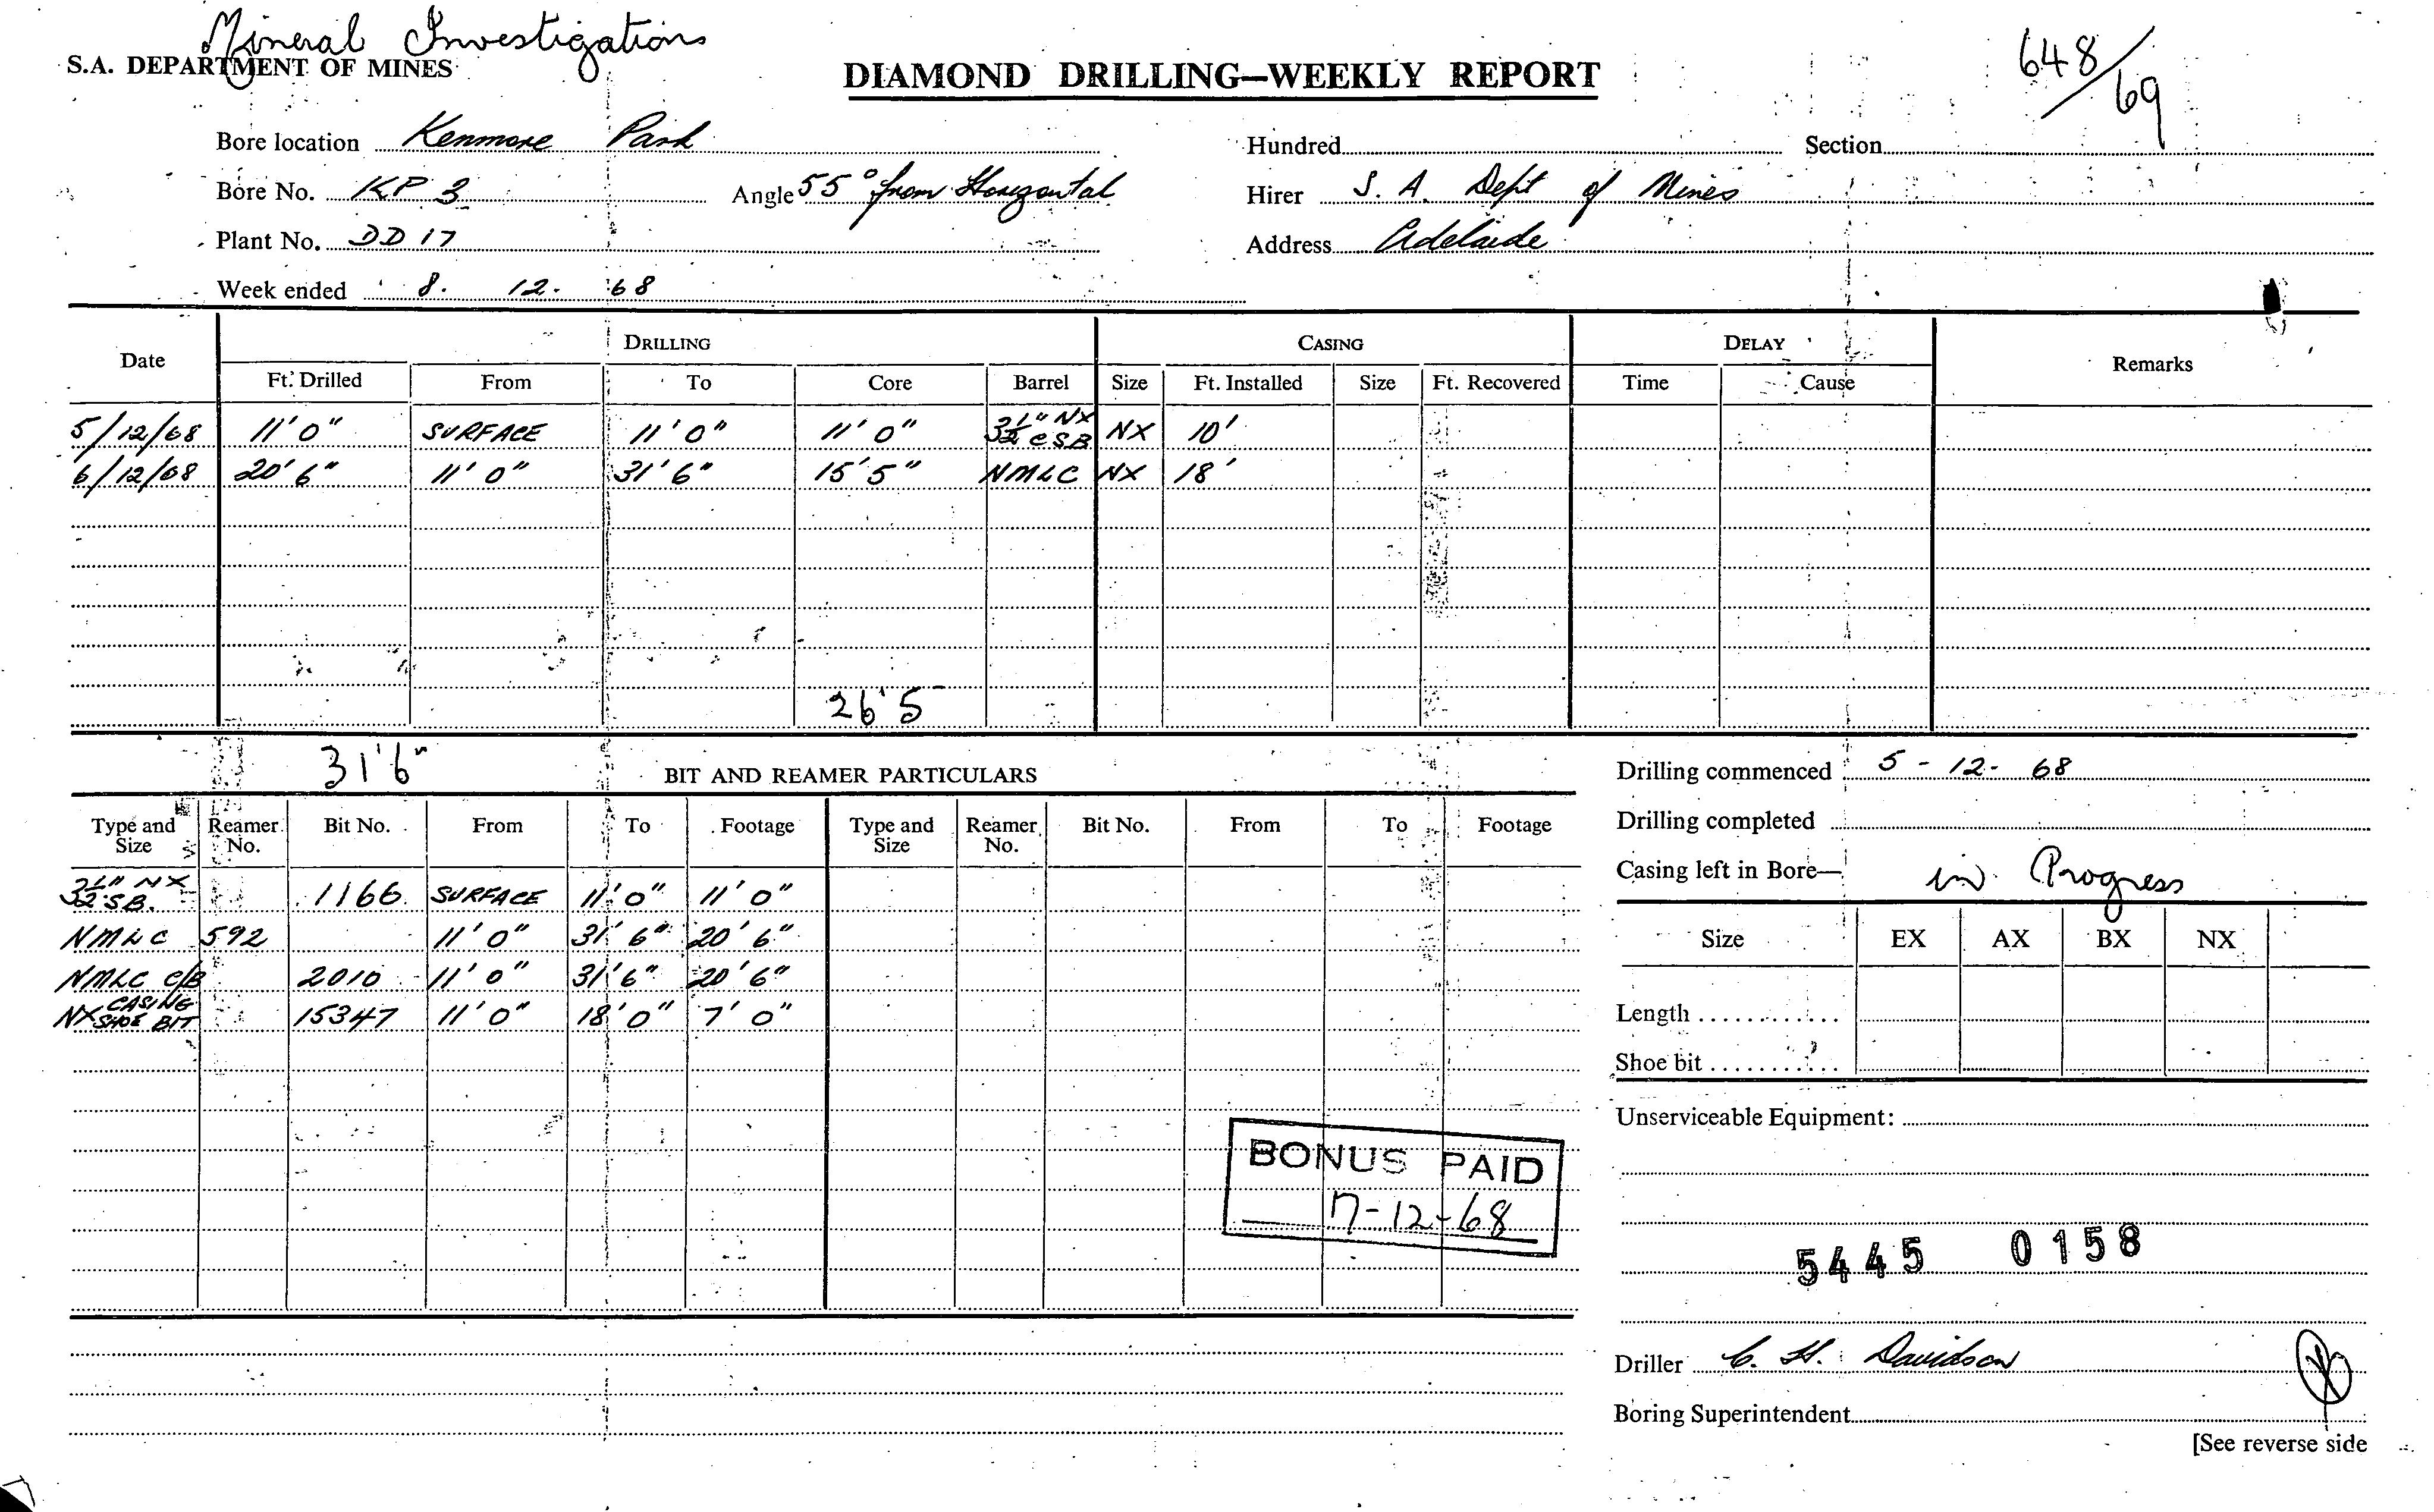 Mineral Investigations
S.A. DEPARTMENT OF MINES
DIAMOND DRILLING—WEEKLY REPORT
648/69
Bore location Kenmore Park
Hundred Section
Bore No. KP 3 Angle 55° from Horizontal
Hirer S. A. Dept of Mines
Plant No. DD 17
Address Adelaide
Week ended 8. 12. 68
Date DRILLING CASING DELAY Remarks
Ft. Drilled From To Core Barrel Size Ft. Installed Size Ft. Recovered Time Cause
5/12/68 11'0" SURFACE 11'0" 11'0" 3½" NX CSB NX 10'
6/12/68 20'6" 11'0" 31'6" 15'5" NMLC NX 18'
26'5
31'6"
BIT AND REAMER PARTICULARS
Type and Size Reamer No. Bit No. From To Footage Type and Size Reamer No. Bit No. From To Footage
3½" NX SB. 1166 SURFACE 11'0" 11'0"
NMLC 592 11'0" 31'6" 20'6"
NMLC C/B 2010 11'0" 31'6" 20'6"
NX CASING SHOE BIT 15347 11'0" 18'0" 7'0"
BONUS PAID
17-12-68
Drilling commenced 5 - 12 - 68
Drilling completed
Casing left in Bore— in Progress
Size EX AX BX NX
Length
Shoe bit
Unserviceable Equipment:
5445 0158
Driller C. H. Davidson
Boring Superintendent
[See reverse side